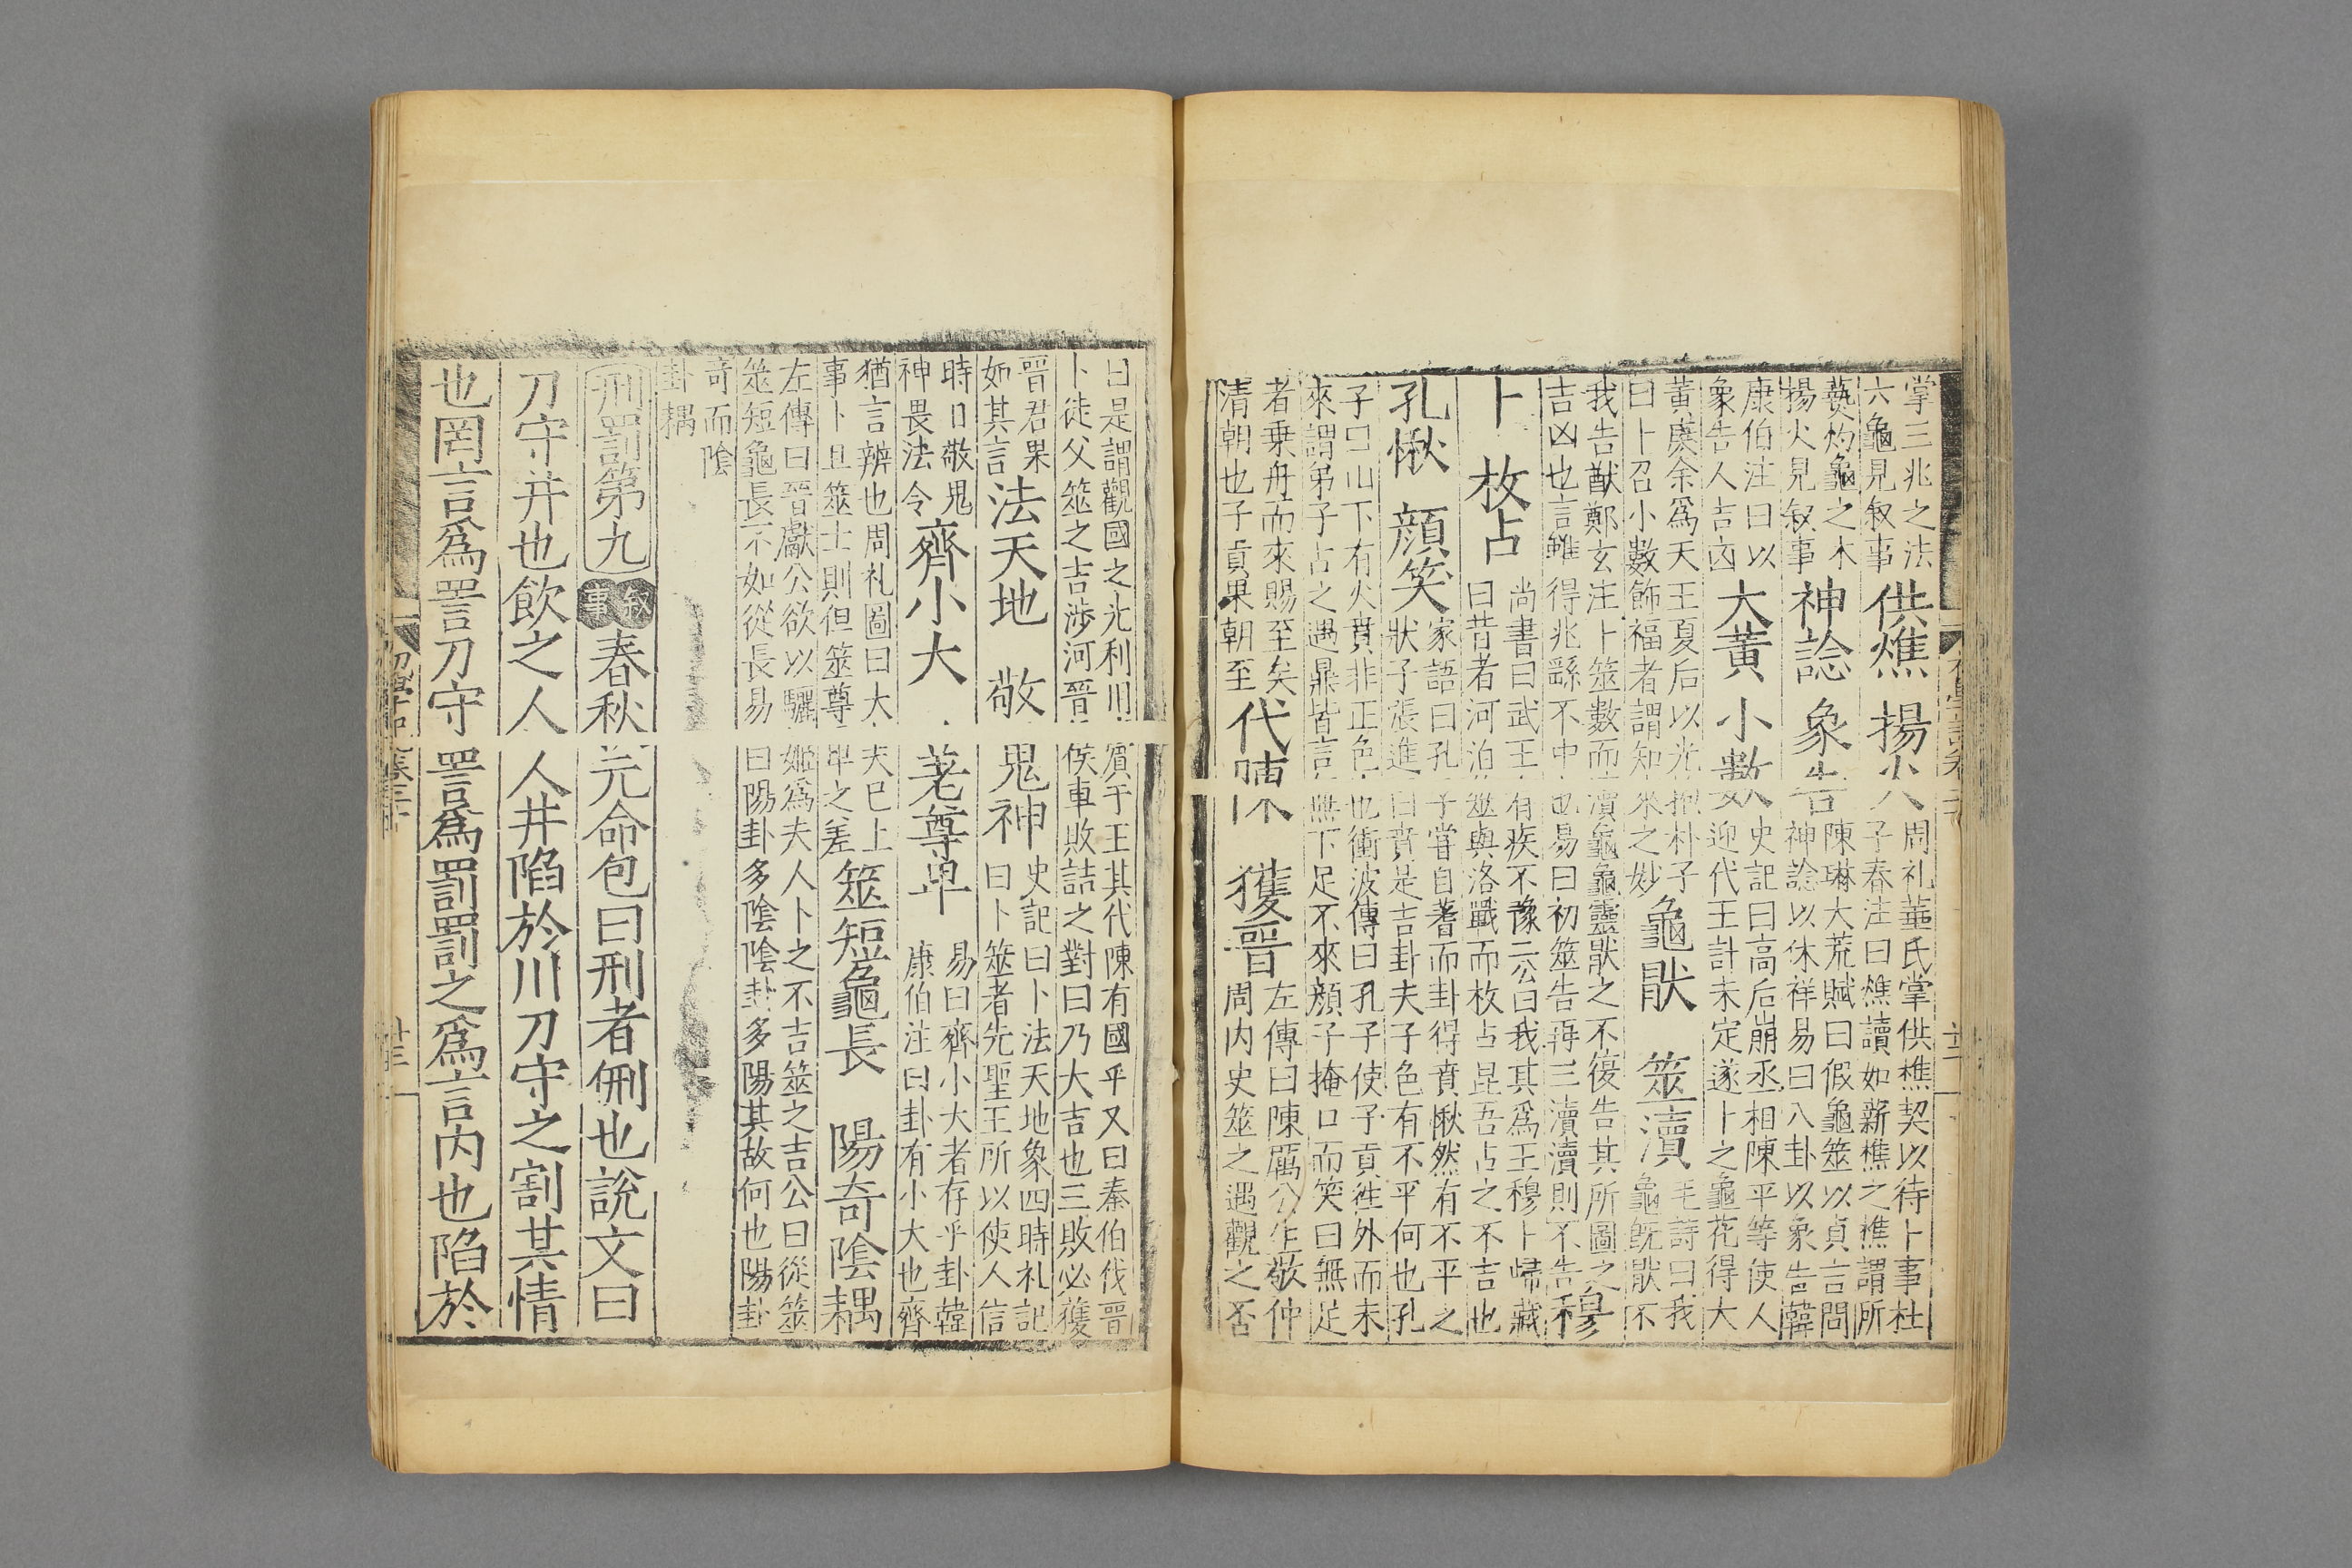 掌三兆之法
六龜見叙事
供燋　揚火
周礼菙氏掌供燋契以待卜事杜
子春注曰燋讀如薪樵之樵謂所
爇灼龜之木
揚火見叙事
神諗　象告
陳琳大荒賦曰假龜筮以貞言問
神諗以休祥易曰八卦以象告韓
康伯注曰以
象告人吉凶
大黃　小數
史記曰高后崩丞相陳平等使人
迎代王計未定遂卜之龜花得大
黃庚余爲天王夏后以光抱朴子
曰卜召小數飾福者謂知來之妙
龜猒　筮瀆
毛詩曰我
龜既猒不
我告猷鄭玄注卜筮數而瀆龜龜靈猒之不復告其所圖之
吉凶也言雖得兆繇不中也易曰初筮告再三瀆瀆則不告
穆
卜　枚占
尚書曰武王有疾不豫二公曰我其爲王穆卜歸藏
曰昔者河泊筮與洛戰而枚占昆吾占之不吉也
孔愀　顔笑
家語曰孔子嘗自著而卦得賁愀然有不平之
狀子張進曰賁是吉卦夫子色有不平何也孔
子曰山下有火賁非正色也衝波傳曰孔子使子貢徃外而未
來謂弟子占之遇鼎皆言無下足不來顔子掩口而笑曰無足
者乗舟而來賜至矣
清朝也子貢果朝至
代陳　獲晉
左傳曰陳厲公生敬仲
周内史筮之遇觀之否
曰是謂觀國之光利用賔于王其代陳有國乎又曰秦伯伐晉
卜徒父筮之吉涉河晉侯車敗詰之對曰乃大吉也三敗必獲
晉君果
如其言
法天地　敬鬼神
史記曰卜法天地象四時礼記
曰卜筮者先聖王所以使人信
時日敬鬼
神畏法令
齊小大　差尊卑
易曰齊小大者存乎卦韓
康伯注曰卦有小大也齊
猶言辨也周礼圖曰大夫巳上
事卜且筮士則但筮尊卑之差
筮短龜長　陽奇陰耦
左傳曰晉獻公欲以驪姬爲夫人卜之不吉筮之吉公曰從筮
筮短龜長不如從長易曰陽卦多陰陰卦多陽其故何也陽卦
奇而陰
卦耦
刑罰第九
叙事
春秋元命包曰刑者侀也說文曰
刀守井也飲之人人井陷於川刀守之割其情
也罔言爲詈刀守詈爲罰罰之爲言内也陷於